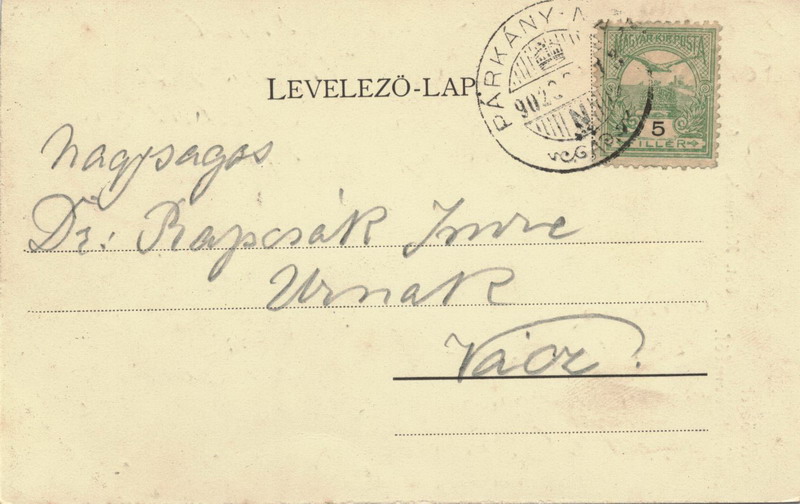 LEVELEZŐ-LAP
PÁRKÁNY-N
902
MAGYAR KIR. POSTA
5
FILLÉR
Nagyságos
Dr: Rapcsák Imre
Urnak
Vácz.